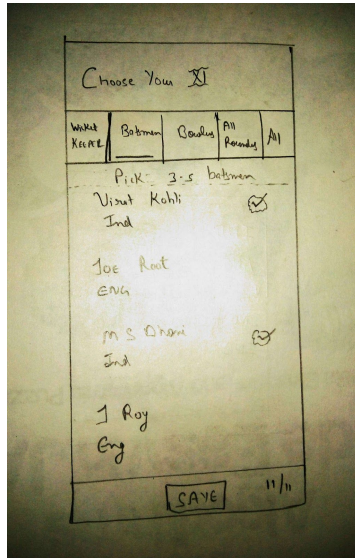 Choose Your XI
Wicket Keeper
Batsmen
Bowlers
All Rounders
All
Pick: 3-5 batsmen
Virat Kohli
Ind
Joe Root
ENG
M S Dhoni
Ind
J Roy
Eng
SAVE
11/11